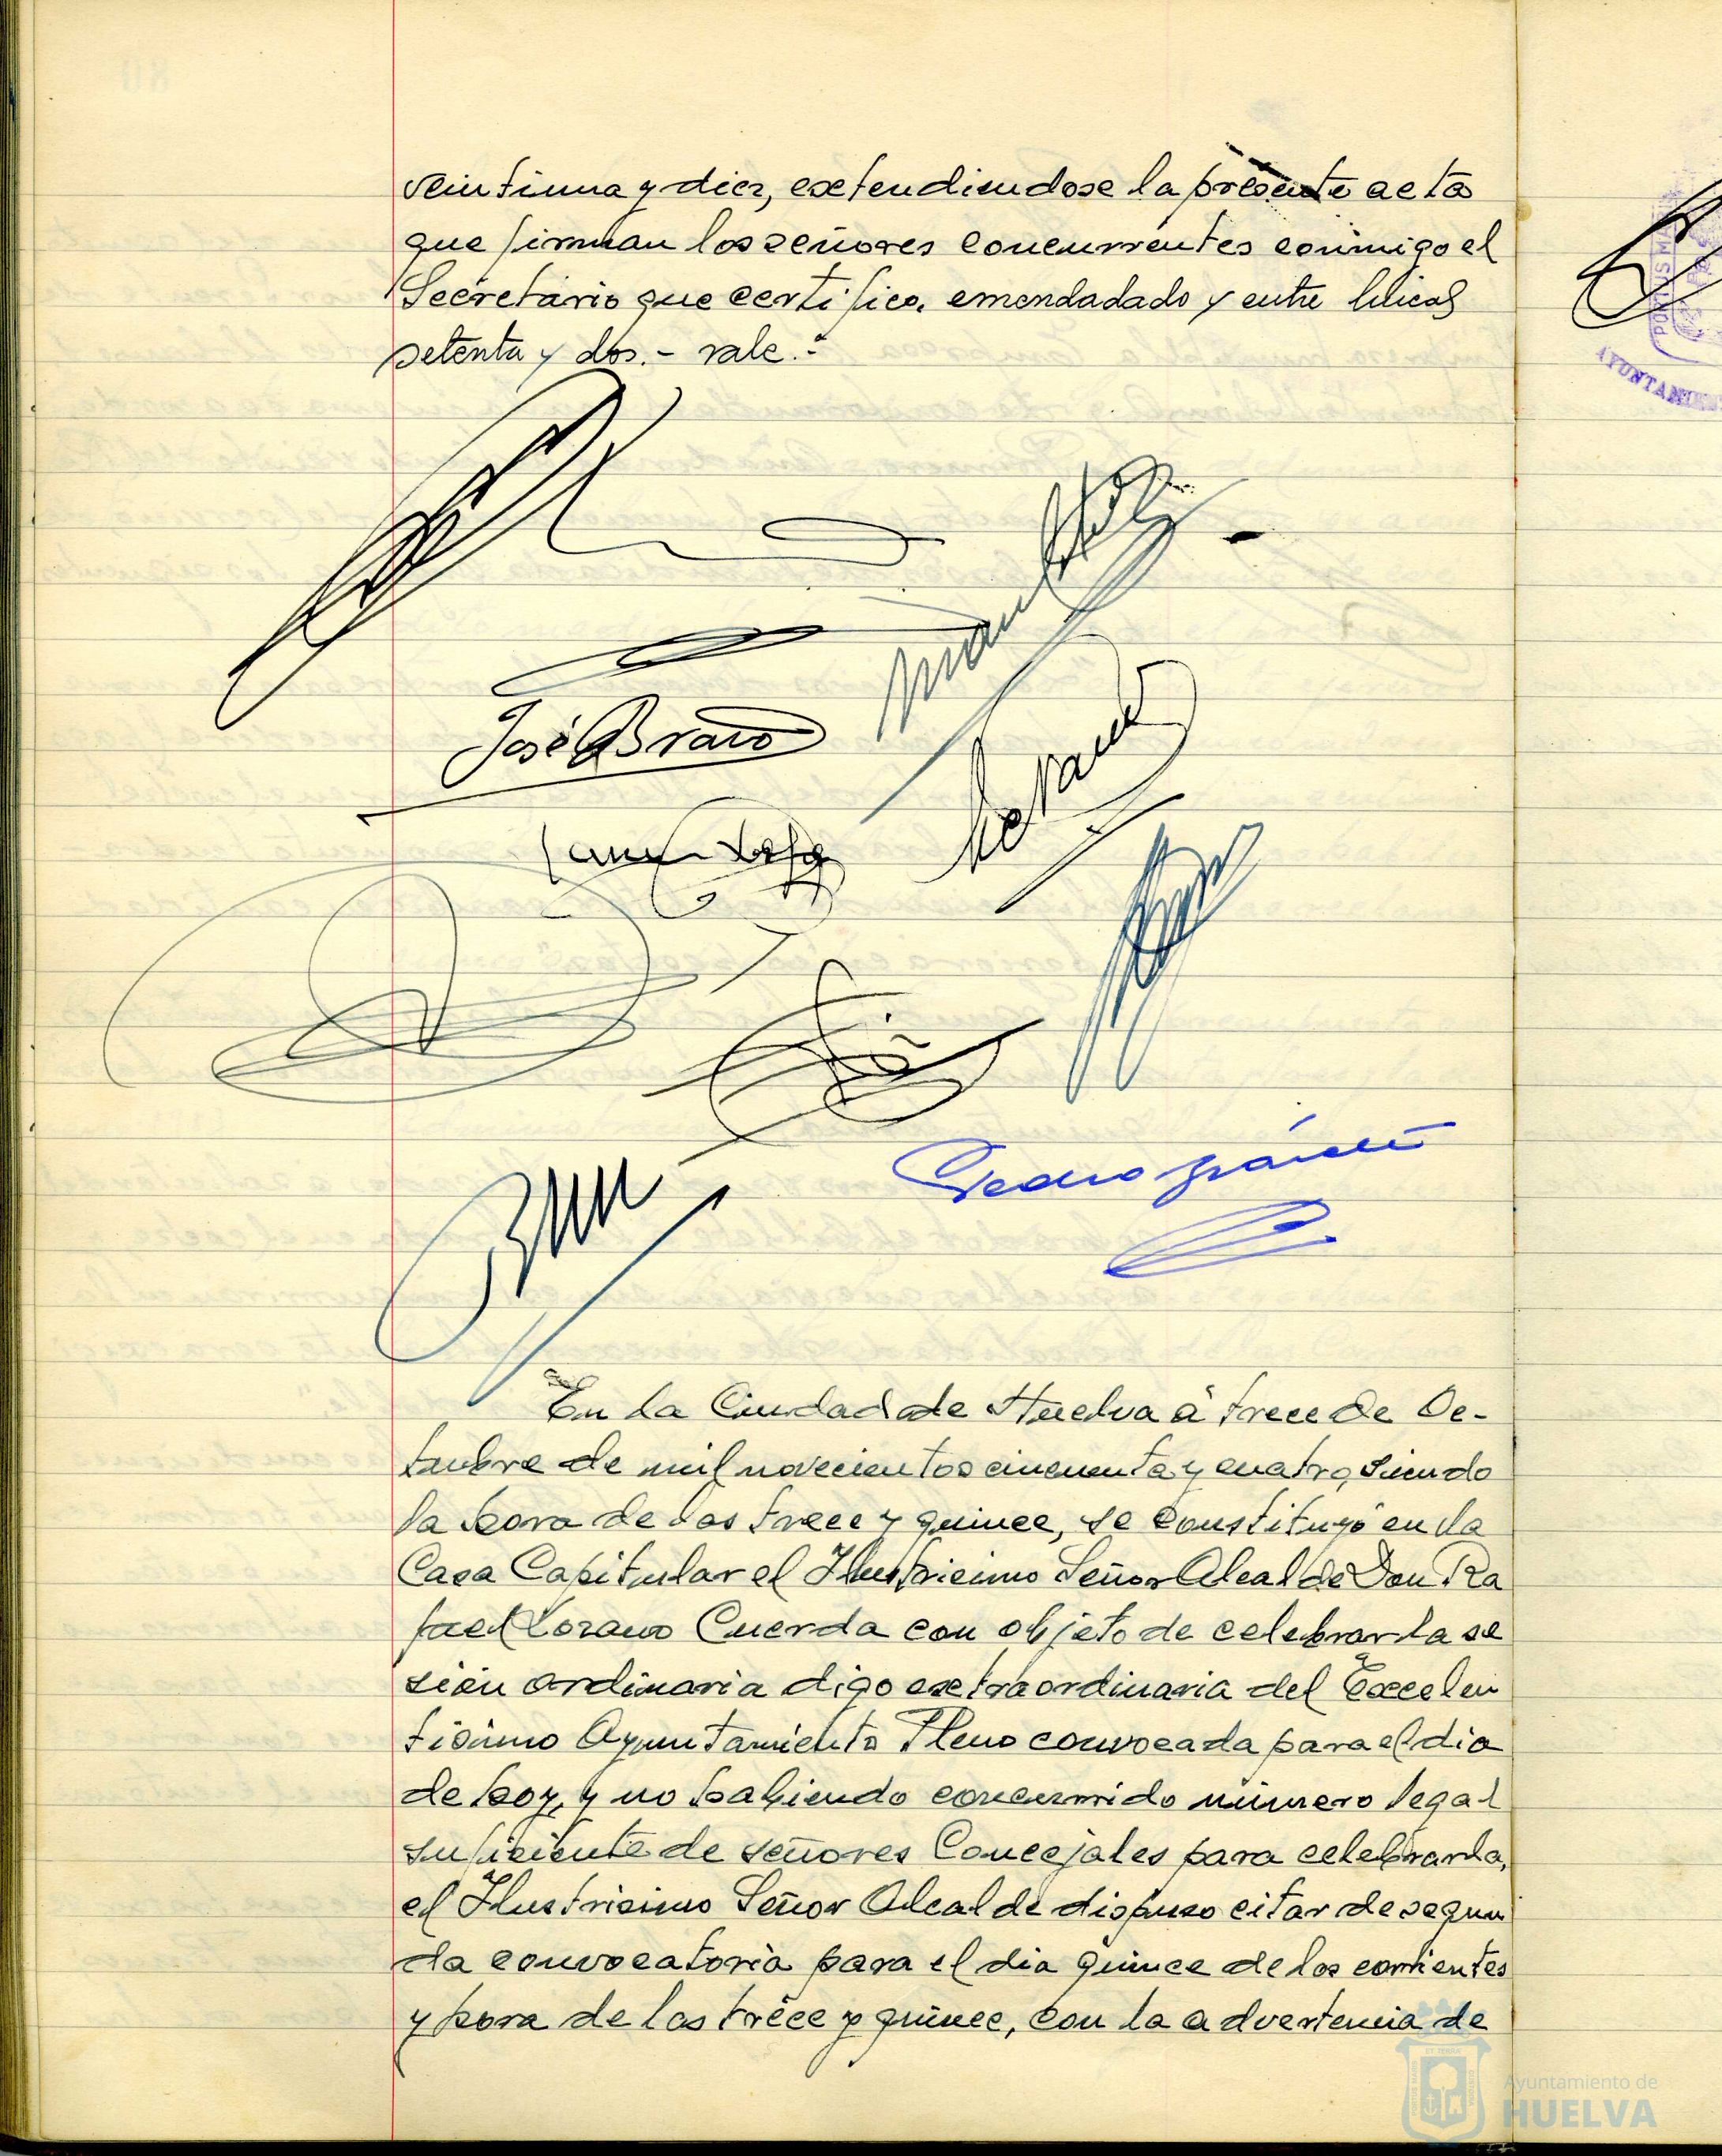 veintiuna y diez, extendiendose la presente acta
que firman los señores concurrentes conmigo el
Secretario que certifico. emendadado y entre lineas
setenta y dos.- vale.-
PORTUS M
AYUNTAMIE
Manuel
José Bravo
Pedro
En la Ciudad de Huelva á trece de Oc-
tubre de mil novecientos cincuenta y cuatro, siendo
la hora de las trece y quince, se constituyó en la
Casa Capitular el Ilustrisimo Señor Alcalde Don Ra
fael Lozano Cuerda con objeto de celebrar la se
sión ordinaria digo extraordinaria del Excelen
tisimo Ayuntamiento Pleno convocada para el dia
de hoy, y no habiendo concurrido número legal
suficiente de señores Concejales para celebrarla,
el Ilustrisimo Señor Alcalde dispuso citar de segun
da convocatoria para el dia quince de los corrientes
y hora de las trece y quince, con la advertencia de
Ayuntamiento de
HUELVA